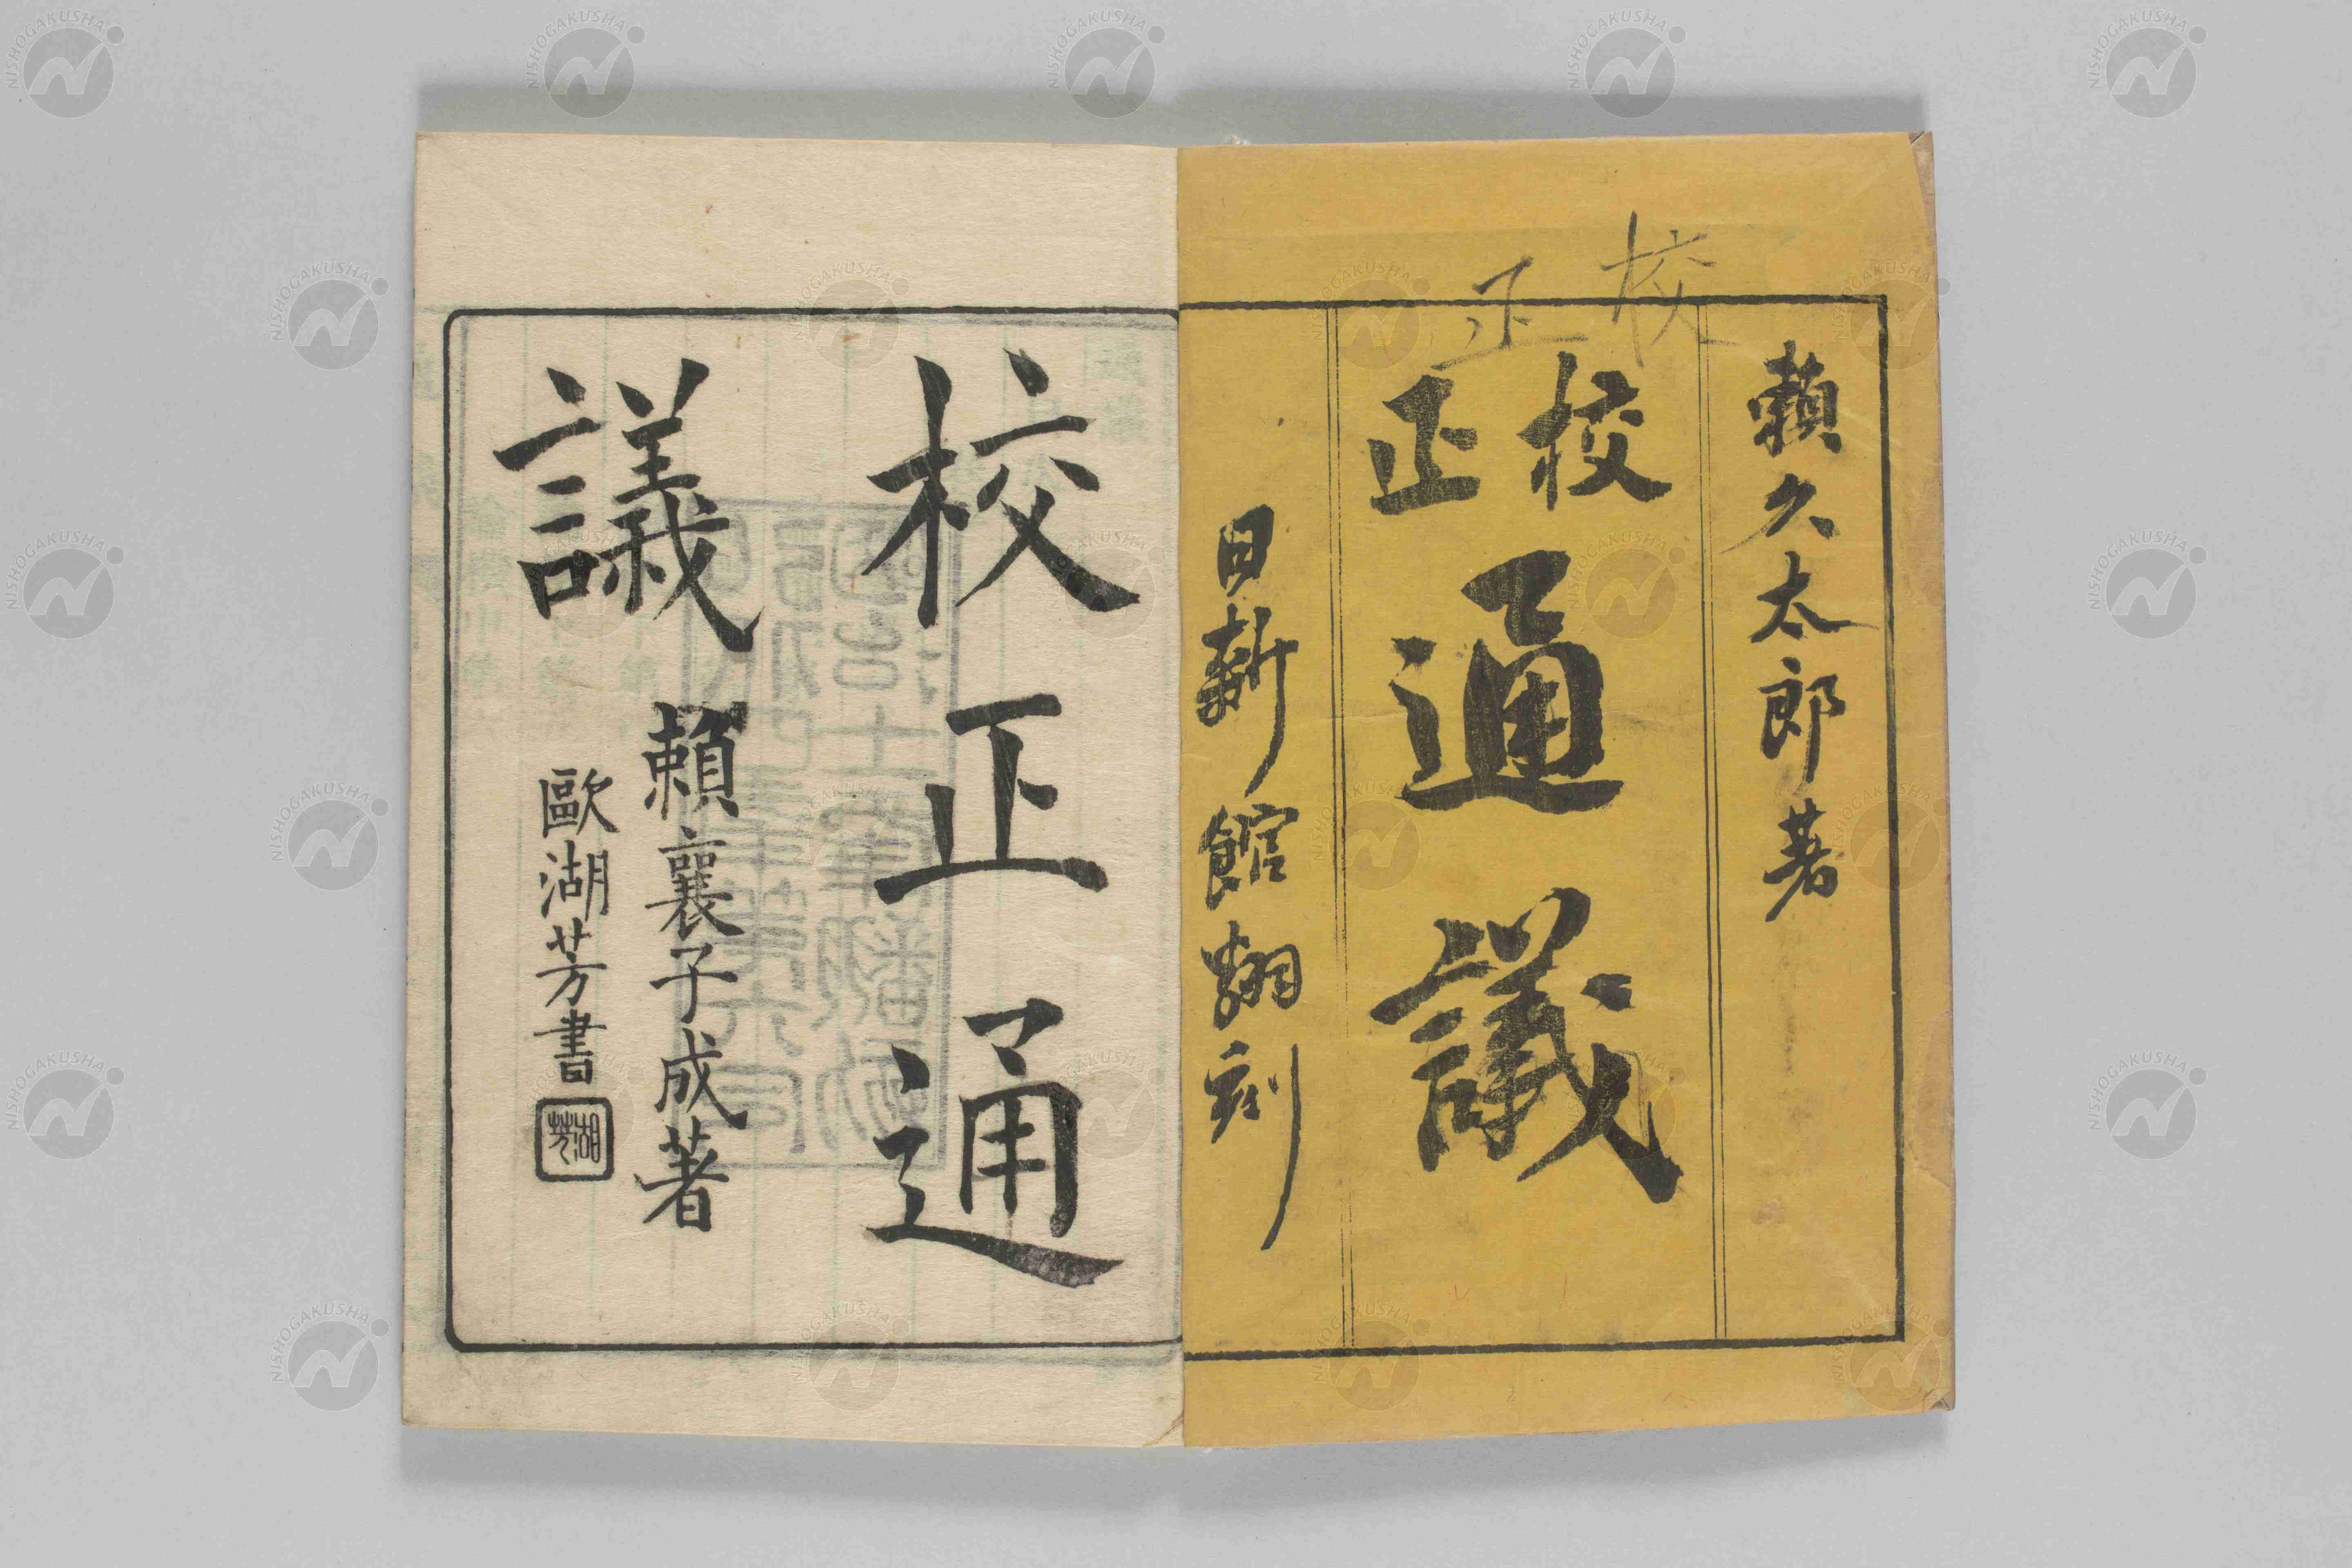 校正
賴久太郎著
校正
通議
日新館翻刻
校正通
議
賴襄子成著
歐湖芳書
NISHOGAKUSHA